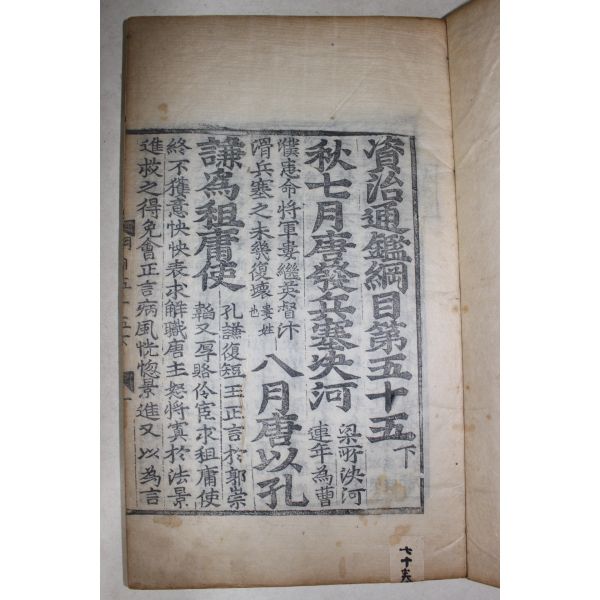 資治通鑑綱目第五十五 下
秋七月唐發兵塞決河
梁所決河
連年為曹
濮患命將軍婁繼英督汴
滑兵塞之未幾復壞婁姓也
八月唐以孔
謙為租庸使
孔謙復短王正言於郭崇
韜又厚賂伶宦求租庸使
終不獲意怏怏表求解職唐主怒將寘於法景
進救之得免會正言病風恍惚景進又以為言
七十